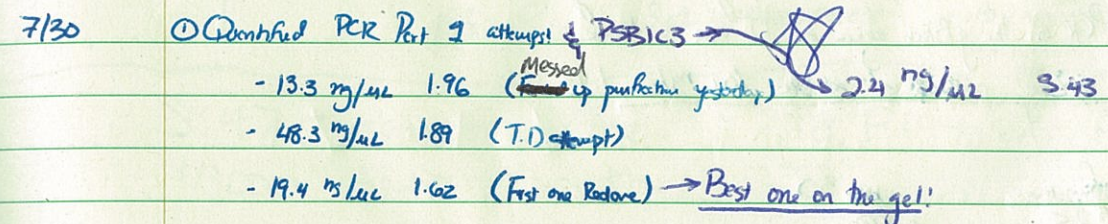 7/30 ① Quantified PCR Part 1 attemps! & PSB1C3 →
- 13.3 ng/uL 1.96 (Messed up purification yesterday) 2.4 ng/uL 3.43
- 48.3 ng/uL 1.89 (T.D attempt)
- 19.4 ng/uL 1.62 (First one Redone) → Best one on the gel!